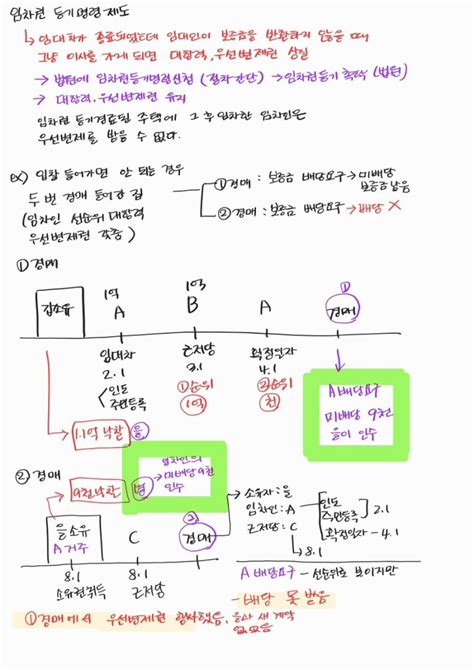 임차권 등기명령 제도
↳ 임대차가 종료되었는데 임대인이 보증금을 반환하지 않을 때
그냥 이사를 가게 되면 대항력, 우선변제권 상실
→ 법원에 임차권등기명령신청 (절차간단) → 임차권등기 촉탁 (법원)
→ 대항력, 우선변제권 유지
임차권 등기경료된 주택에 그 후 임차한 임차인은
우선변제를 받을 수 없다.
ex) 입찰 들어가면 안 되는 경우
두 번 경매 들어간 집
(임차인 선순위 대항력
우선변제권 갖춤)
①경매 : 보증금 배당요구 → 미배당
보증금 남음
②경매 : 보증금 배당요구 → 배당 X
①경매
갑소유
1억
A
1억
B
A
①
경매
임대차
2.1
인도
주민등록
근저당
3.1
①순위
1억
확정일자
4.1
②순위
천
A배당요구
미배당 9천
을이 인수
1.1억 낙찰 을
②경매
9천낙찰 병
임차인의
미배당 9천
인수
을소유
A거주
C
②
경매
8.1
소유권취득
8.1
근저당
소유자 : 을
임차인 : A
근저당 : C
인도
주민등록
2.1
확정일자 - 4.1
8.1
A배당요구 - 선순위로 보이지만
- 배당 못 받음
①경매에서 우선변제권 행사했음, 을과 새 계약
없었음